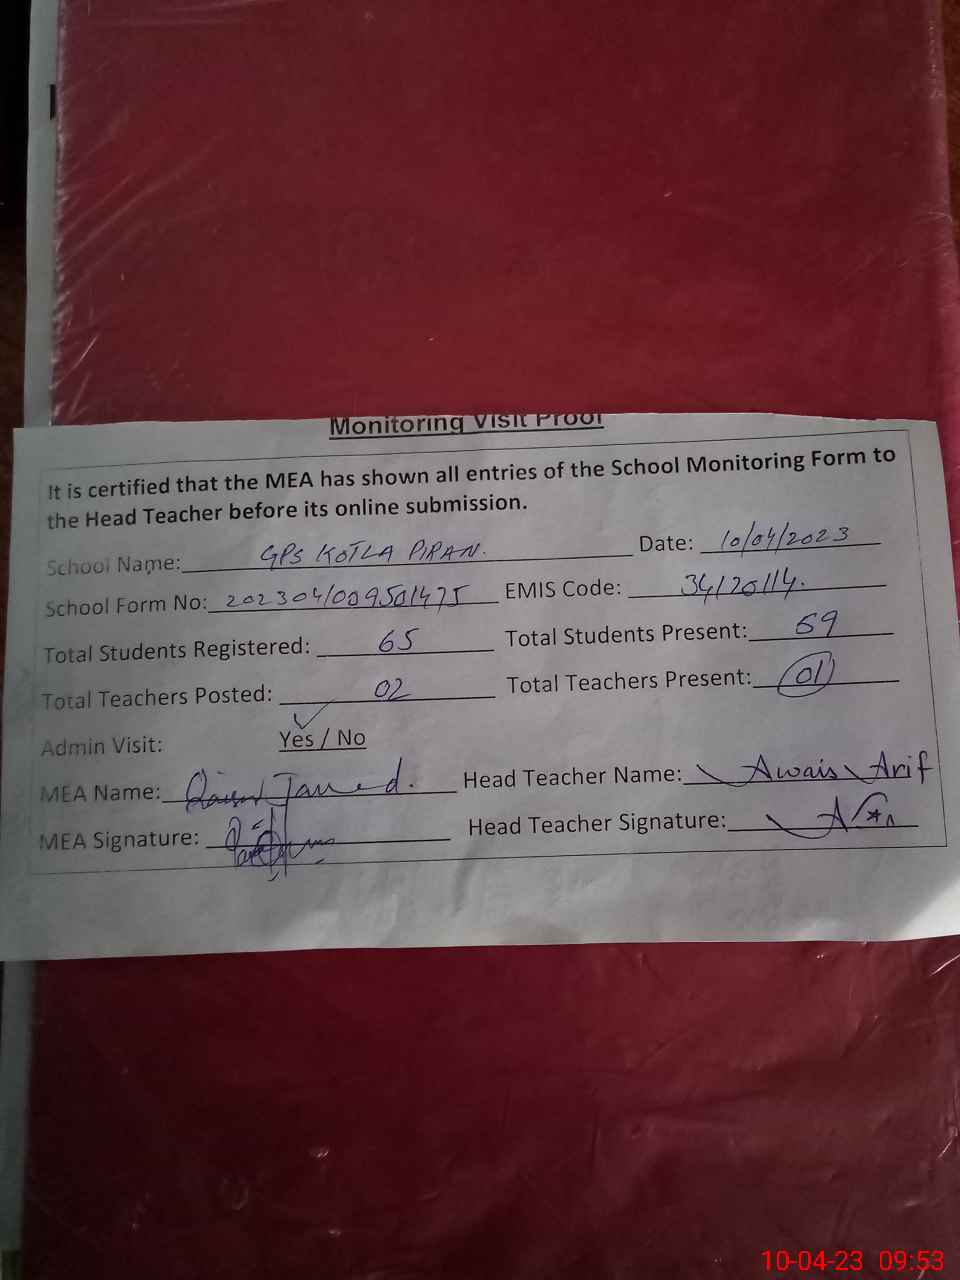 Monitoring Visit Proof
It is certified that the MEA has shown all entries of the School Monitoring Form to
the Head Teacher before its online submission.
School Name: GPS KOTLA PIRAN. Date: 10/04/2023
School Form No: 202304/009501475 EMIS Code: 34120114.
Total Students Registered: 65 Total Students Present: 59
Total Teachers Posted: 02 Total Teachers Present: 01
Admin Visit: Yes / No
MEA Name: Head Teacher Name: Awais Arif
MEA Signature: Head Teacher Signature:
10-04-23 09:53